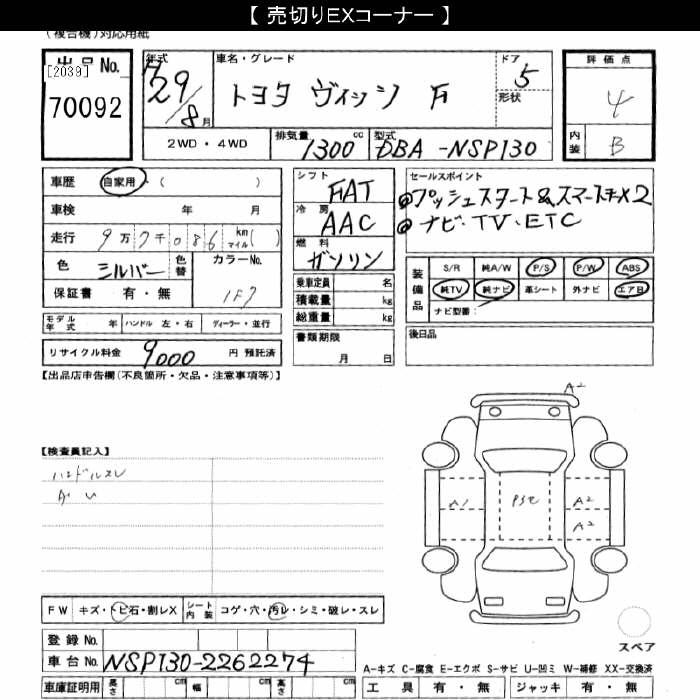 【 売切りEXコーナー 】
（複合機）対応用紙
出品 No.
[2039]
70092
年式 29/8月
車名・グレード
トヨタ ヴィッツ F
ドア 5
形状
評価点
4
内装 B
2WD・4WD
排気量 1300 cc
型式 DBA-NSP130
車歴 自家用・（ ）
車検 年 月
走行 9万7千086 km マイル( )
色 シルバー 色替
カラーNo. 1F7
保証書 有・無
シフト FAT
冷房 AAC
燃料 ガソリン
乗車定員 名
積載量 kg
総重量 kg
セールスポイント
@プッシュスタート&スマートキー×2
@ナビ・TV・ETC
装備品
S/R 純A/W P/S P/W ABS
純TV 純ナビ 革シート 外ナビ エアB
ナビ型番：
モデル年式 年 ハンドル 左・右 ディーラー・並行
リサイクル料金 9000 円 預託済
書類期限
月 日
後日品
【出品店申告欄(不良箇所・欠品・注意事項等)】
【検査員記入】
ハンドルスレ
A2
A1
PSC
A2
A2
FW キズ・トビ石・割レX
シート内装 コゲ・穴・汚レ・シミ・破レ・スレ
スペア
登録 No.
車台 No. NSP130-2262274
A-キズ C-腐食 E-エクボ S-サビ U-凹ミ W-補修 XX-交換済
車庫証明用 長さ cm 幅 cm 高さ cm
工具 有・無 ジャッキ 有・無